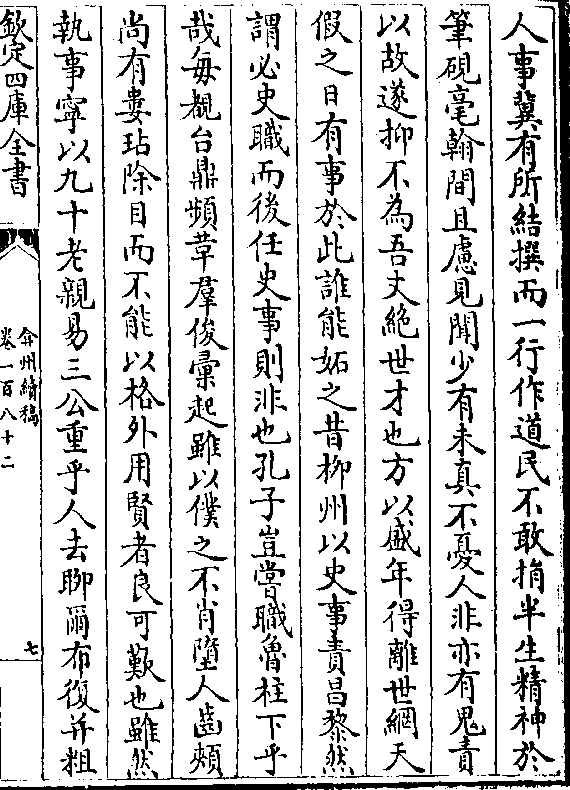 人事冀有所結撰而一行作道民不敢捐半生精神於
筆硯毫翰間且慮見聞少有未真不憂人非亦有鬼責
以故遂抑不為吾丈絶世才也方以盛年得離世網天
假之日有事於此誰能妬之昔柳州以史事責昌黎然
謂必史職而後任史事則非也孔子豈嘗職魯柱下乎
哉毎覩台鼎頻草羣俊彚起雖以僕之不肖墮人齒頰
尚有婁玷除目而不能以格外用賢者良可歎也雖然
執事寧以九十老親易三公重乎人去聊爾布復并粗
欽定四庫全書
弇州續稿
卷一百八十二
七